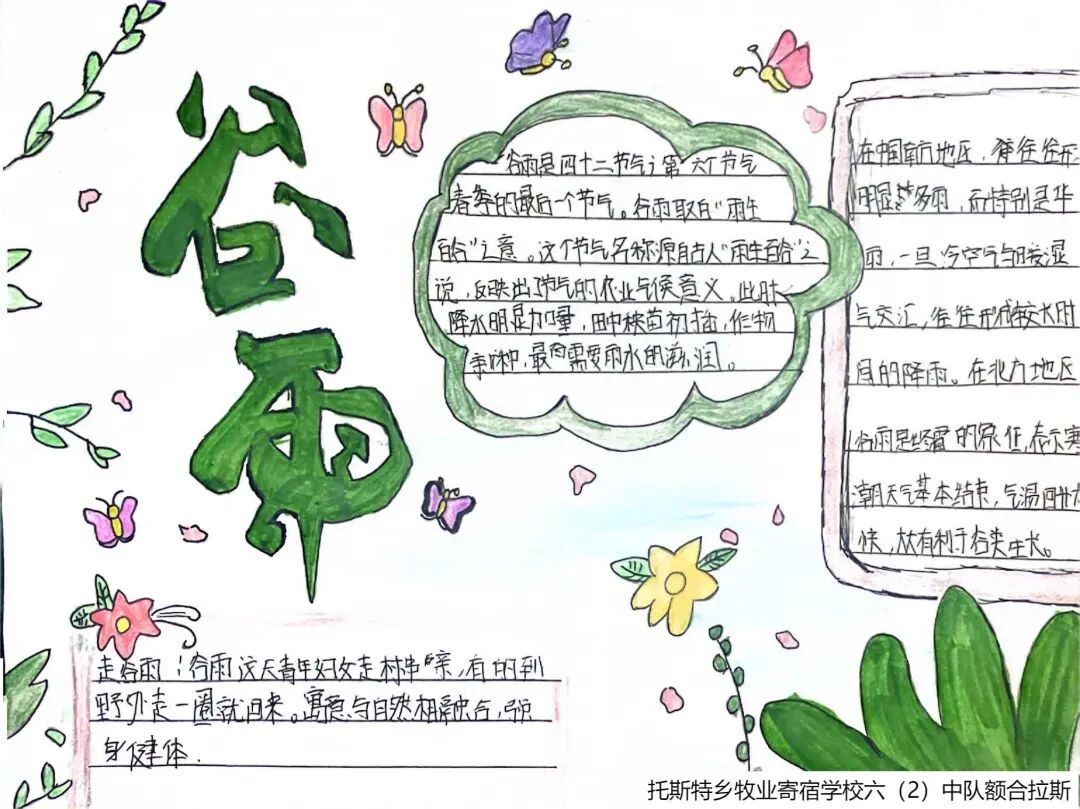 谷雨
谷雨是四十二节气之第六个节气
春季的最后一个节气。谷雨取自“雨生
百谷”之意。这个节气名称源自古人“雨生百谷”之
说，反映出了节气的农业气候意义。此时
降水明显加量，田中秧苗初插，作物
新种，最需要雨水的滋润。
在中国南方地区，往往
明显多雨，而特别是华
雨，一旦冷空气与暖湿
气交汇，往往形成较长时
间的降雨。在北方地区
谷雨是终霜的象征，表示寒
潮天气基本结束，气温回升
快，有利于谷类生长。
走谷雨：谷雨这天青年妇女走村串亲，有的到
野外走一圈就回来。寓意与自然相融合，强
身健体.
托斯特乡牧业寄宿学校六（2）中队额合拉斯